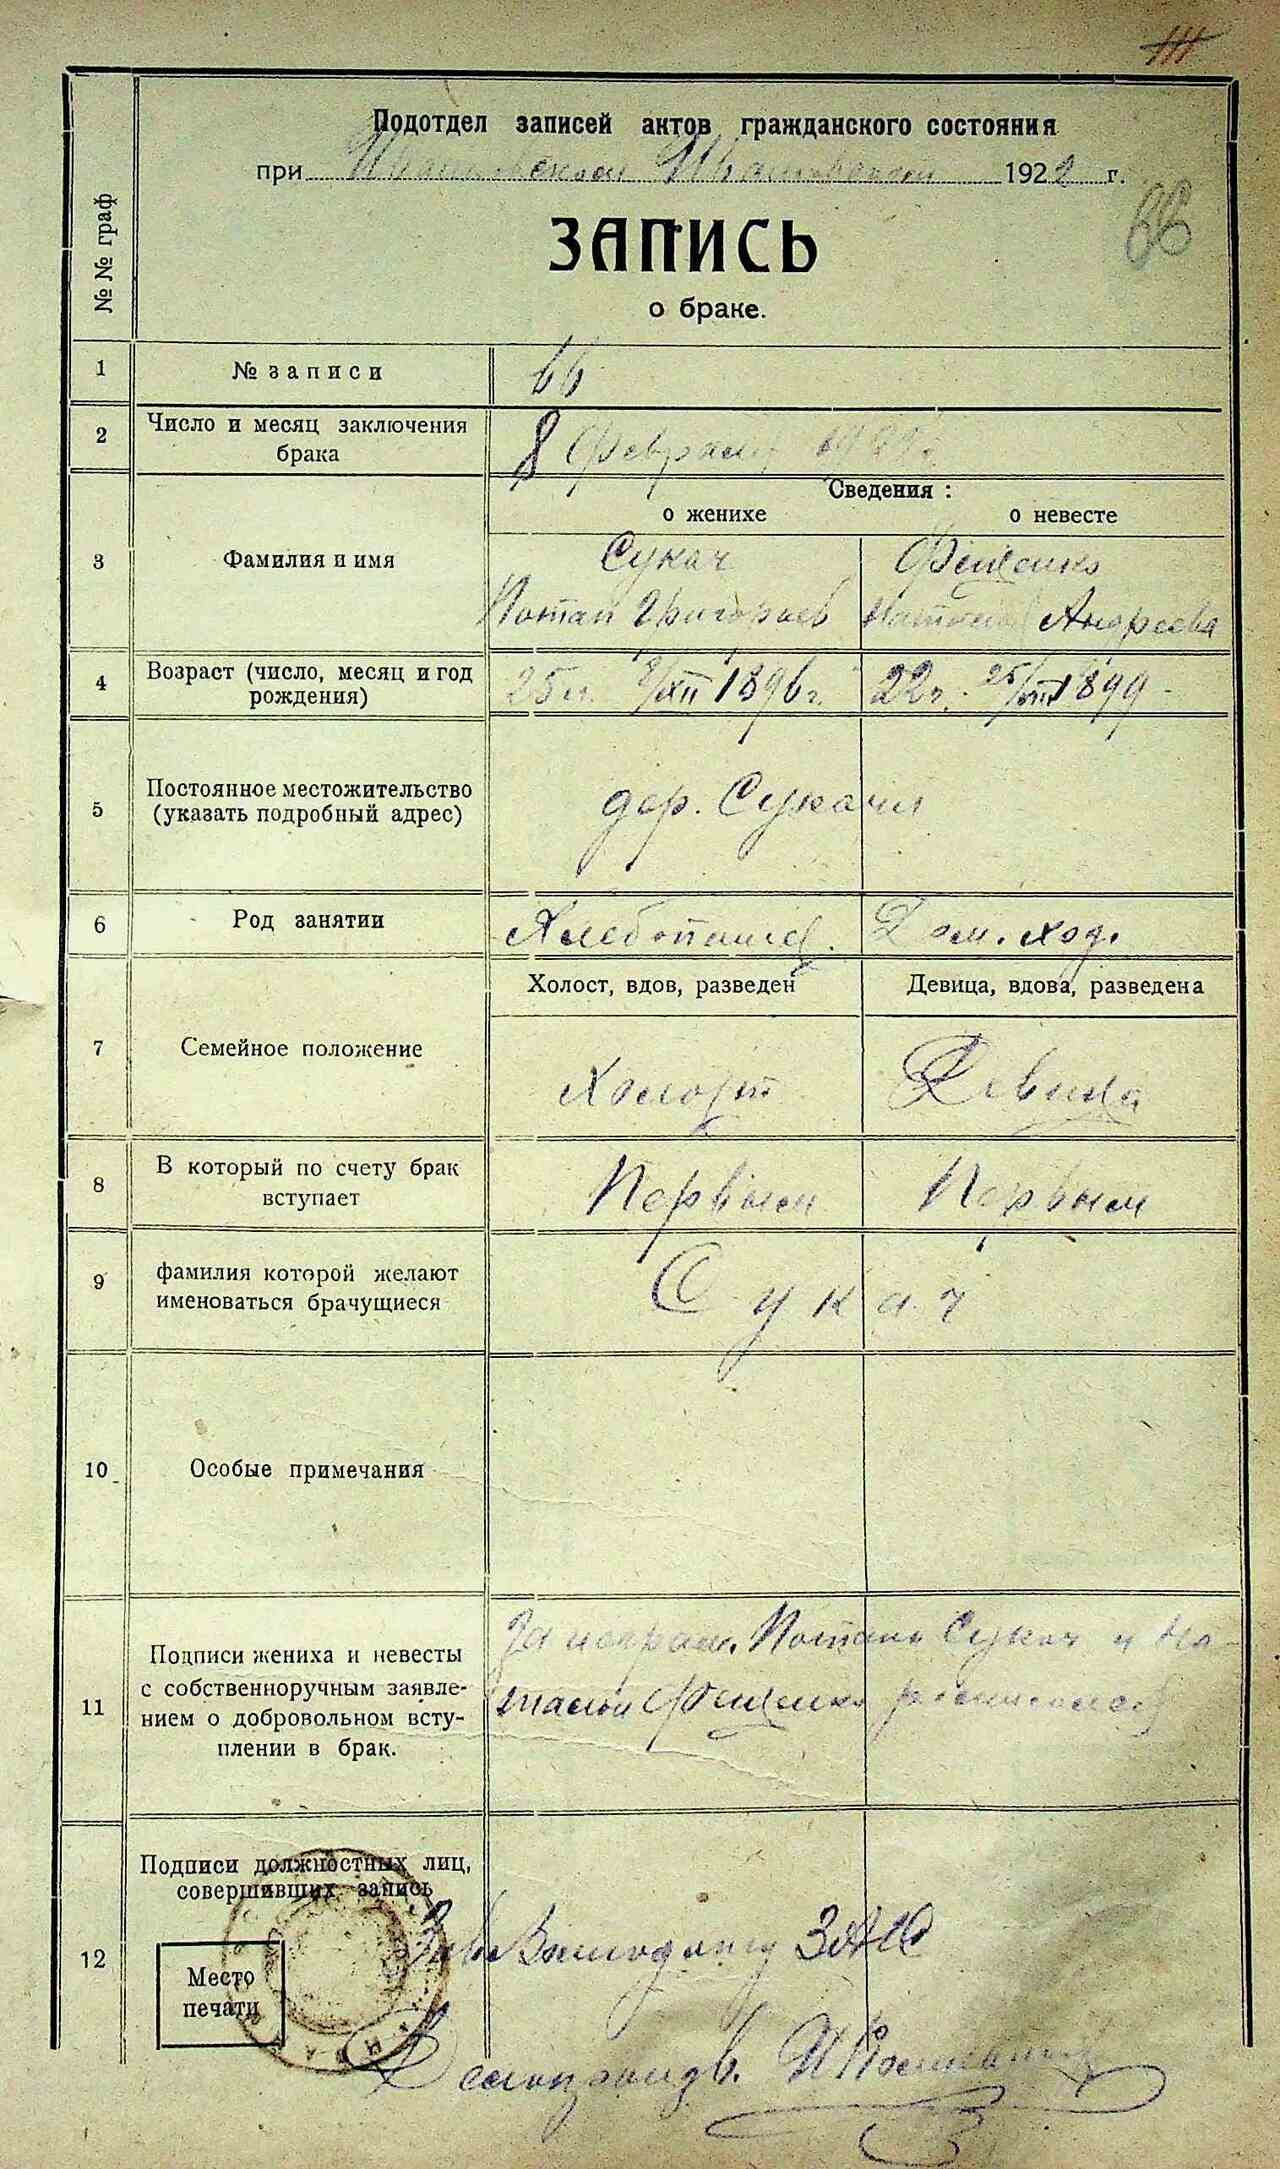 Подотдел записей актов гражданского состояния
при 1922 г.
66
ЗАПИСЬ
о браке.
№ № граф
1 № записи 66
2 Число и месяц заключения
брака
8 Февраля 1922 г.
Сведения:
о женихе о невесте
3 Фамилия и имя
Сукач Фещенко
Потап Григорьев Наталия Андреева
4 Возраст (число, месяц и год
рождения)
25 л. 9/XII 1896 г. 22 г. 25/VIII 1899
5 Постоянное местожительство
(указать подробный адрес)
дер. Сукачи
6 Род занятии Хлебопашец. Дом. хоз.
Холост, вдов, разведен Девица, вдова, разведена
7 Семейное положение
Холост Девица
8 В который по счету брак
вступает
Первым Первым
9 фамилия которой желают
именоваться брачущиеся
Сукач
10 Особые примечания
11 Подписи жениха и невесты
с собственноручным заявле-
нием о добровольном всту-
плении в брак.
За неграм. Потапа Сукач и На-
талии Фещенко
12 Подписи должностных лиц,
совершивших запись
Место
печати
Зав. ЗАГС
Делопроизв.